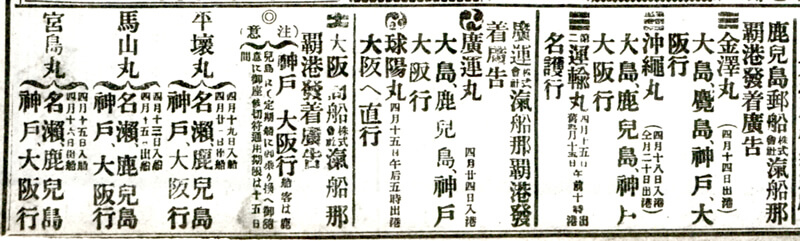 鹿兒島郵船株式會社滊船那
覇港發着廣告
金澤丸(四月十四日出港)
大島、鹿兒島、神戸、大
阪行
沖繩丸(四月十八日入港
仝月二十日出港)
大島、鹿兒島、神戸、
大阪行
第二運輸丸四月十五日午前十時出港
名護行
廣運株式會社滊船那覇港發
着廣告
廣運丸 四月廿四日入港
大島、鹿兒島、神戸
大阪行
球陽丸四月十五日午后五時出港
大阪へ直行
大阪商船株式會社滊船那
覇港發着廣告
◎注意
神戸 大阪行船客は鹿
兒島にて定期船に御乘り換へ御随
意に御座候切符通用期限は十五日
間
平壤丸
四月十九日入港
四月廿一日出港
名瀬鹿兒島
神戸、大阪行
馬山丸
四月十三日入港
四月十五日出港
名瀬、鹿兒島
神戸、大阪行
宮島丸
四月十五日入港
四月十六日出港
名瀬鹿兒島
神戸、大阪行